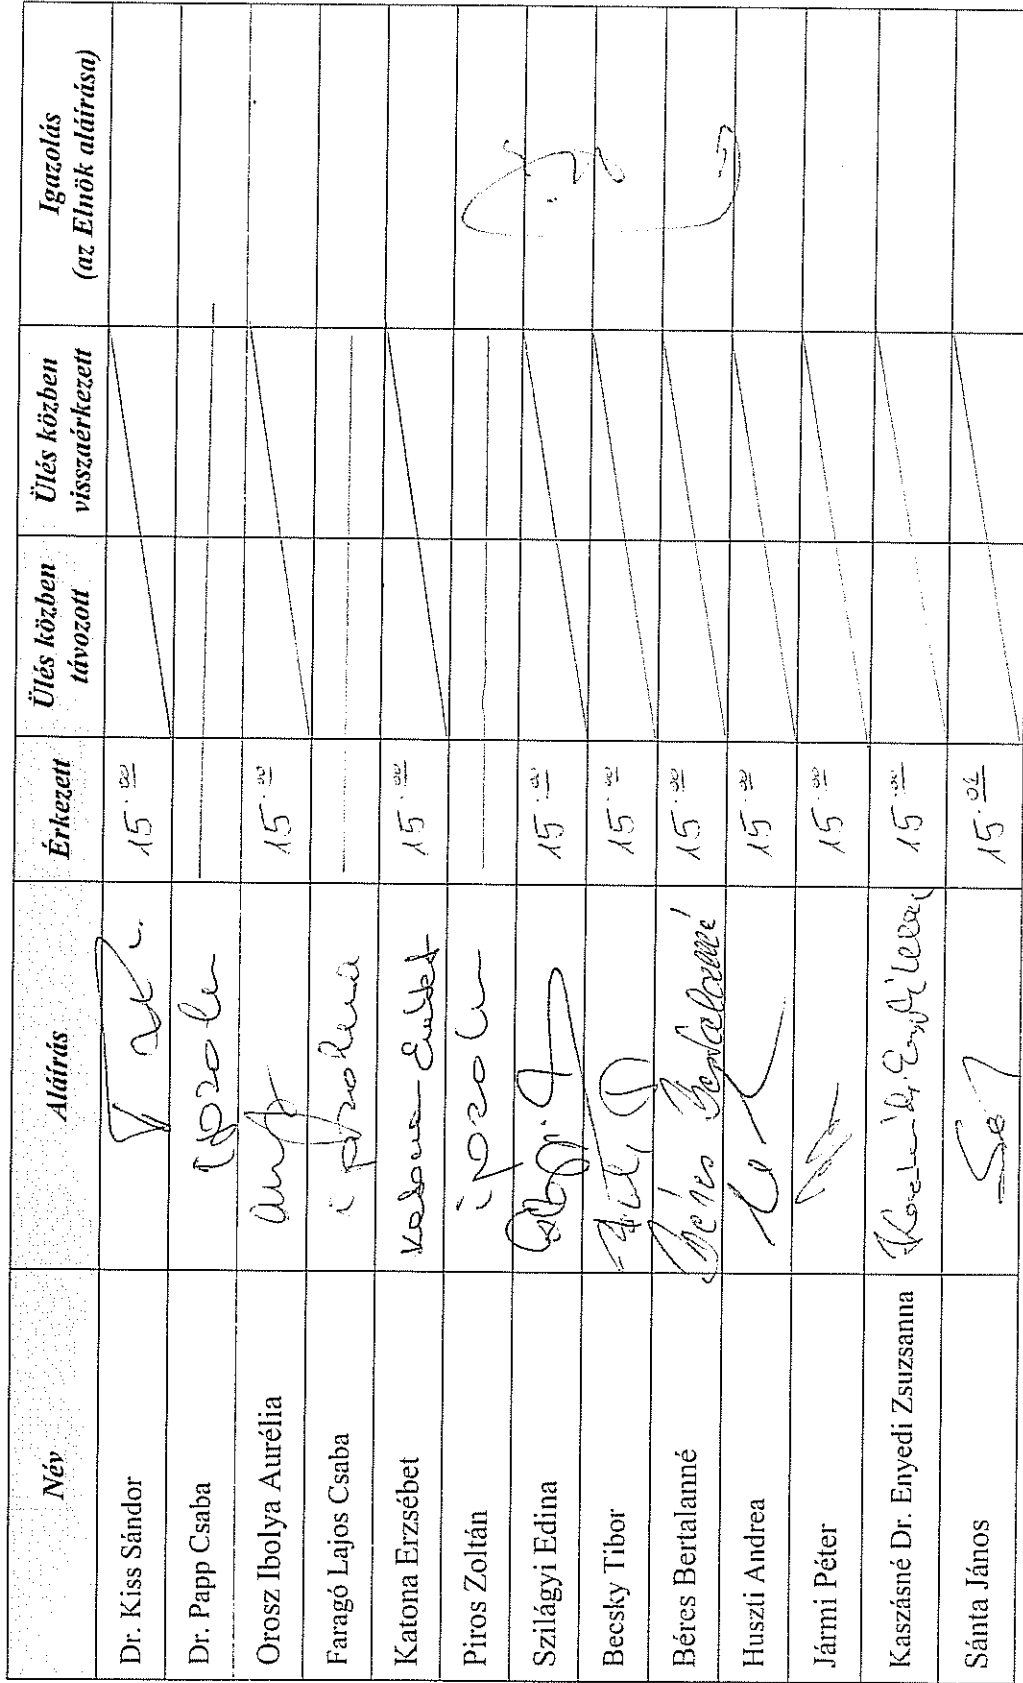 Név Aláírás Érkezett Ülés közben távozott Ülés közben visszaérkezett Igazolás (az Elnök aláírása)
Dr. Kiss Sándor 15.00
Dr. Papp Csaba
Orosz Ibolya Aurélia 15.00
Faragó Lajos Csaba
Katona Erzsébet Katona Erzsébet 15.00
Piros Zoltán
Szilágyi Edina 15.00
Becsky Tibor 15.00
Béres Bertalanné Béres Bertalanné 15.00
Huszti Andrea 15.00
Jármi Péter 15.00
Kaszásné Dr. Enyedi Zsuzsanna 15.00
Sánta János 15.01